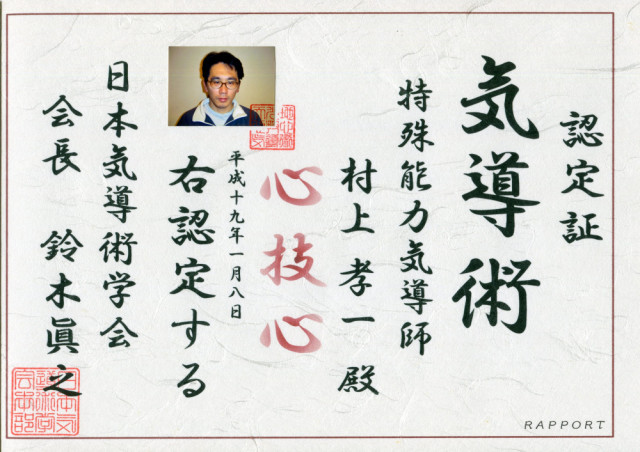 認定証
気導術
特殊能力気導師
村上孝一殿
心技心
平成十九年一月八日
右認定する
日本気導術学会
会長 鈴木眞之
RAPPORT